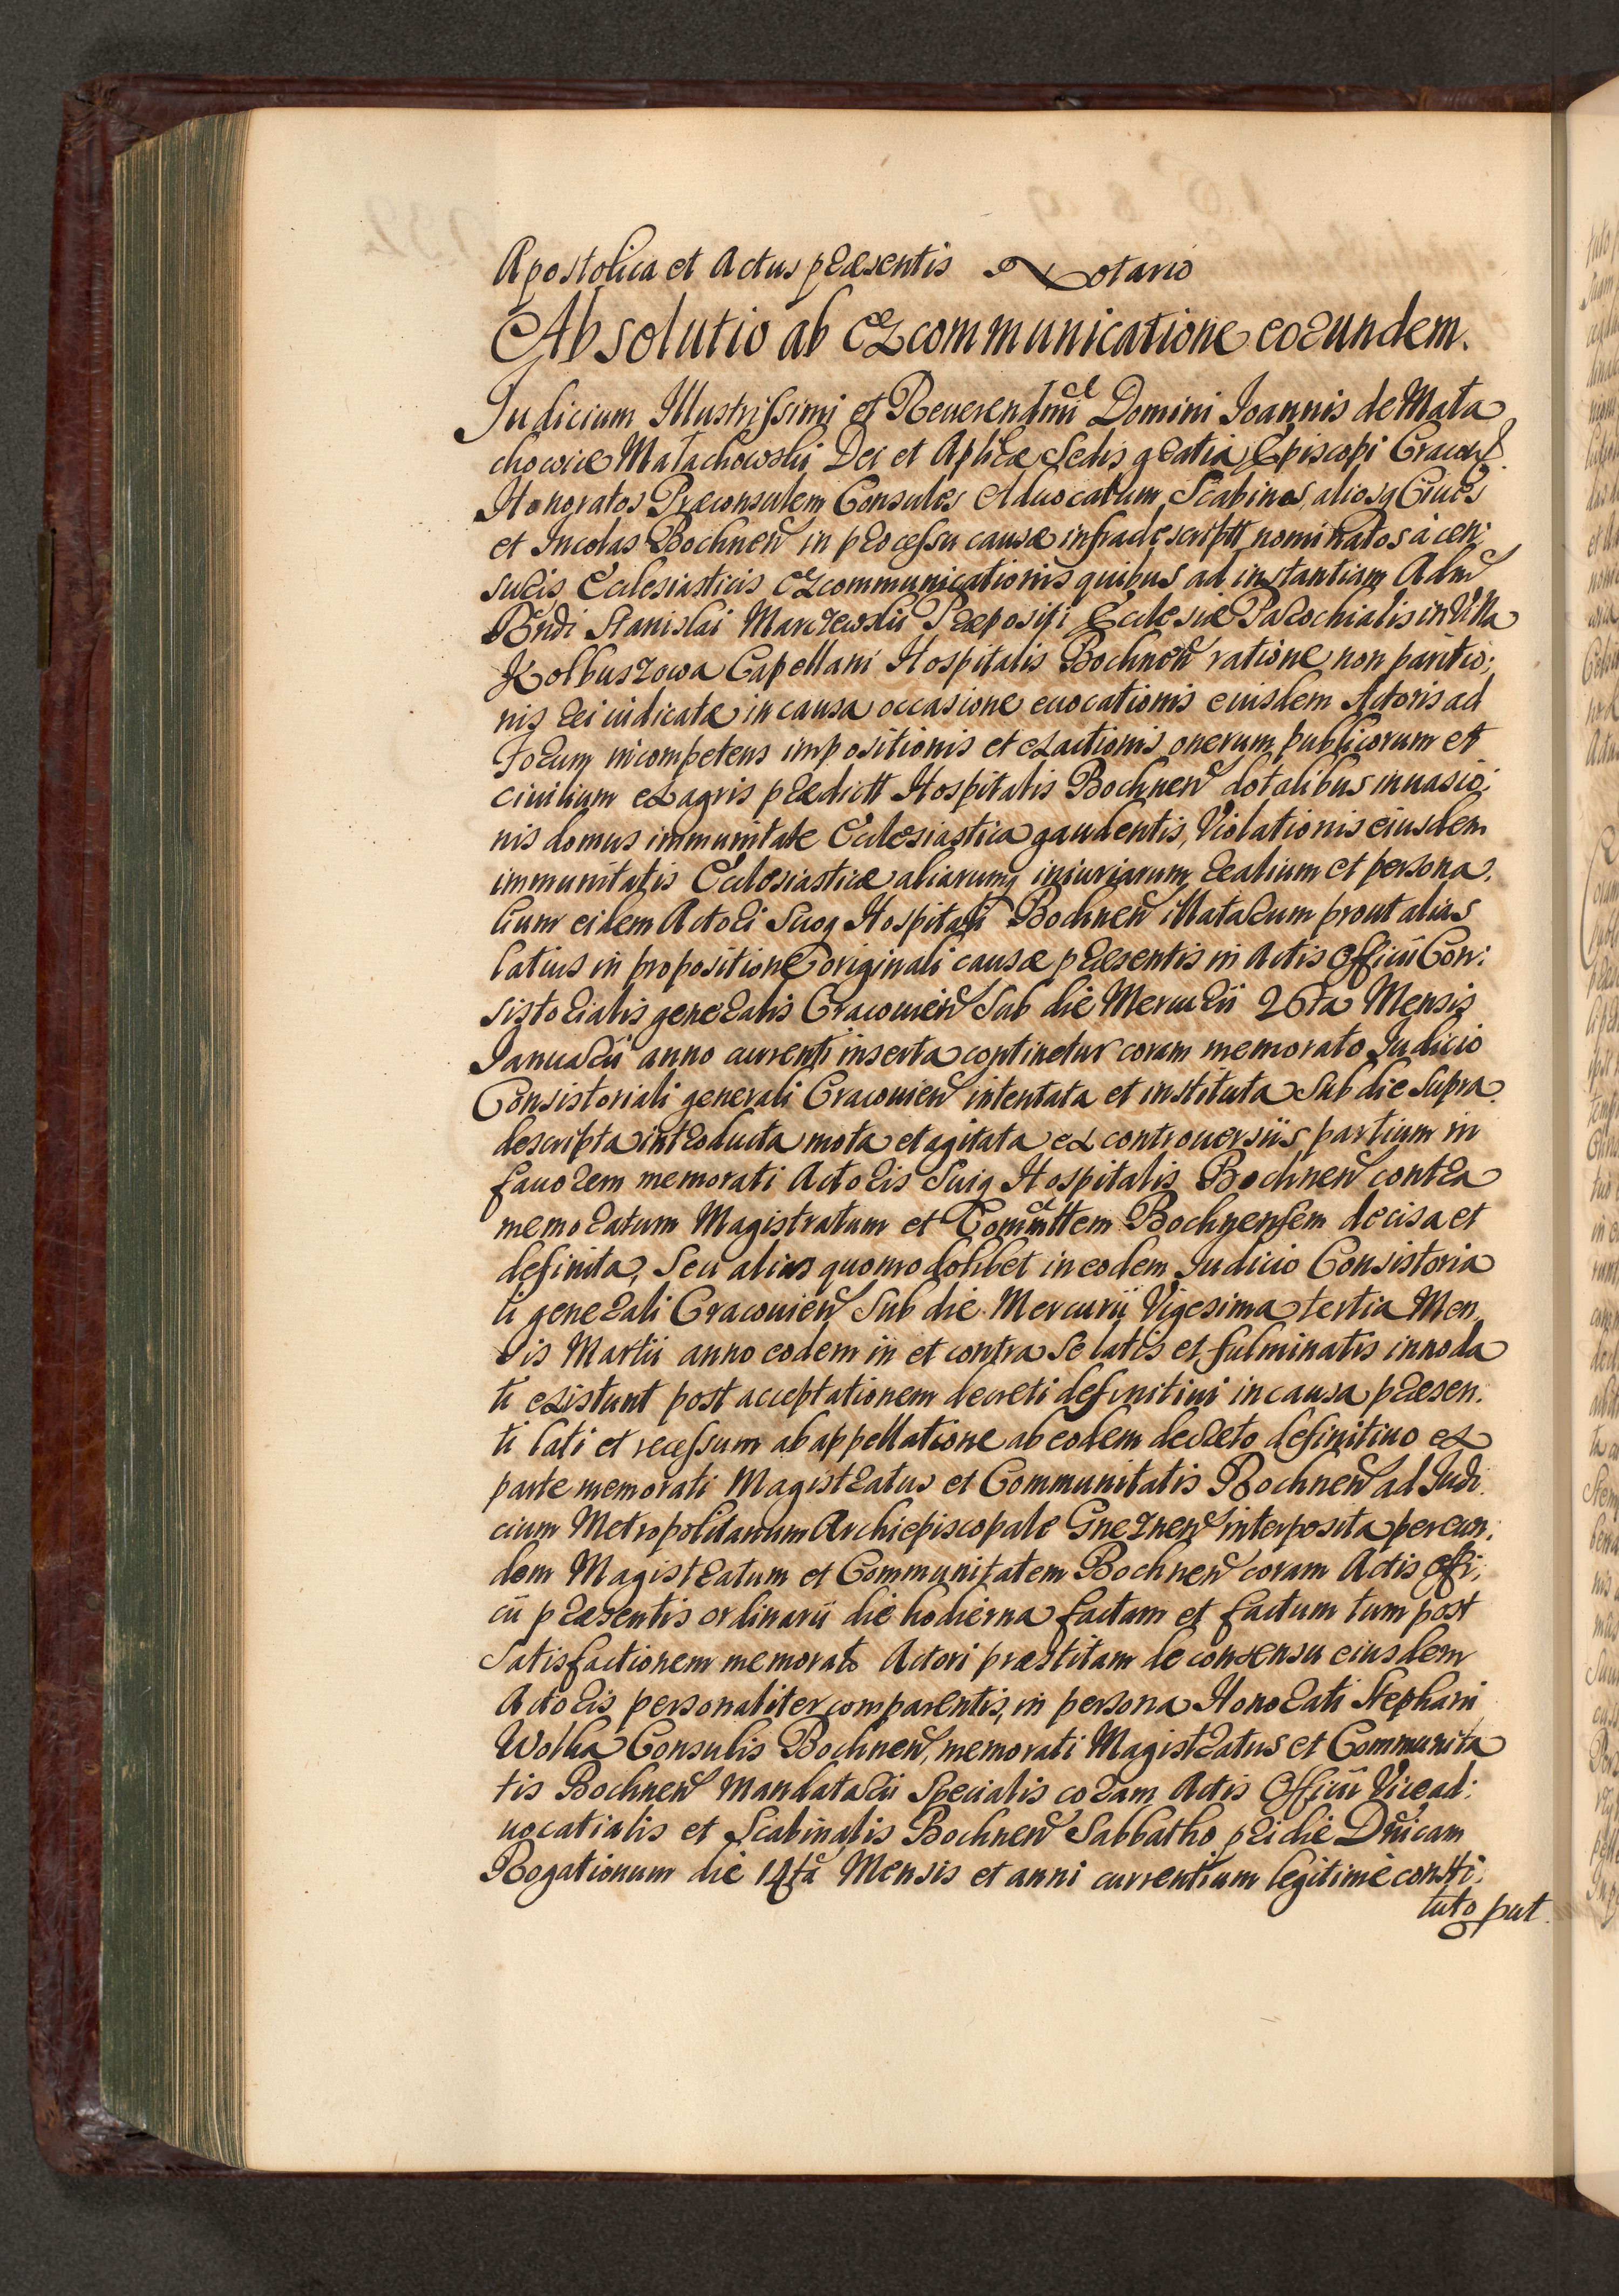 Apostolica et Actus præsentis Notario
Absolutio ab Excommunicatione eorundem.
Judicium Illustrissimi et Reverendmi Domini Joannis de Mała
chowice Małachowski Dei et Aplicæ Sedis gratia Episcopi Cracou
Honoratos Præconsulem Consules Aduocatum Scabinos, aliosq Ciues
et Incolas Bochnen in processu causæ infradescriptt nominatos à cen:
suris Ecclesiasticis Excommunicationis quibus ad instantiam Adm
Rndi Stanislai Marczewski Præpositi Ecclesiæ Parochialis in Villa
Kolbuszowa Capellani Hospitalis Bochnen ratione non paritio:
nis rei iudicatæ in causa occasione euocationis eiusdem Actoris ad
Forum incompetens impositionis et exactionis onerum publicorum et
ciuilium ex agris prædictt Hospitalis Bochnen dotalibus inuasio:
nis domus immunitate Ecclesiastica gaudentis, Violationis eiusdem
immunitatis Ecclesiasticæ aliarumq iniuriarum realium et persona:
lium eidem Actori Suoq Hospitali Bochnen illatarum prout alias
latius in propositione originali causæ præsentis in Actis Officii Con:
sistorialis generalis Cracouien Sub die Mercurii 26ta Mensis
Januarii anno currenti inserta continetur coram memorato Judicio
Consistoriali generali Cracouien intentata et instituta Sub die Supra
descripta introducta mota et agitata ex controuersiis partium in
fauorem memorati Actoris Suiq Hospitalis Bochnen contra
memoratum Magistratum et Commttem Bochnensem decisa et
definita, Seu alias quomodolibet in eodem Judicio Consistoria
li generali Cracouien Sub die Mercurii Vigesima tertia Men
sis Martii anno eodem in et contra Se latis et fulminatis innoda
ti existunt post acceptationem decreti definitiui in causa præsen:
ti lati et recessum ab appellatione ab eodem decreto definitiuo ex
parte memorati Magistratus et Communitatis Bochnen ad Judi
cium Metropolitanum Archiepiscopale Gneznen interposita per eun:
dem Magistratum et Communitatem Bochnen coram Actis offi:
cii præsentis ordinarii die hodierna factam et factum tum post
Satisfactionem memorato Actori præstitam de consensu eiusdem
Actoris personaliter comparentis, in persona Honorati Stephani
Wolka Consulis Bochnen, memorati Magistratus et Communita
tis Bochnen Mandatarii Specialis coram Actis Officii Vicead:
uocatialis et Scabinalis Bochnen Sabbatho pridie Dnicam
Rogationum die 14ta Mensis et anni currentium legitimè consti:
tuto put